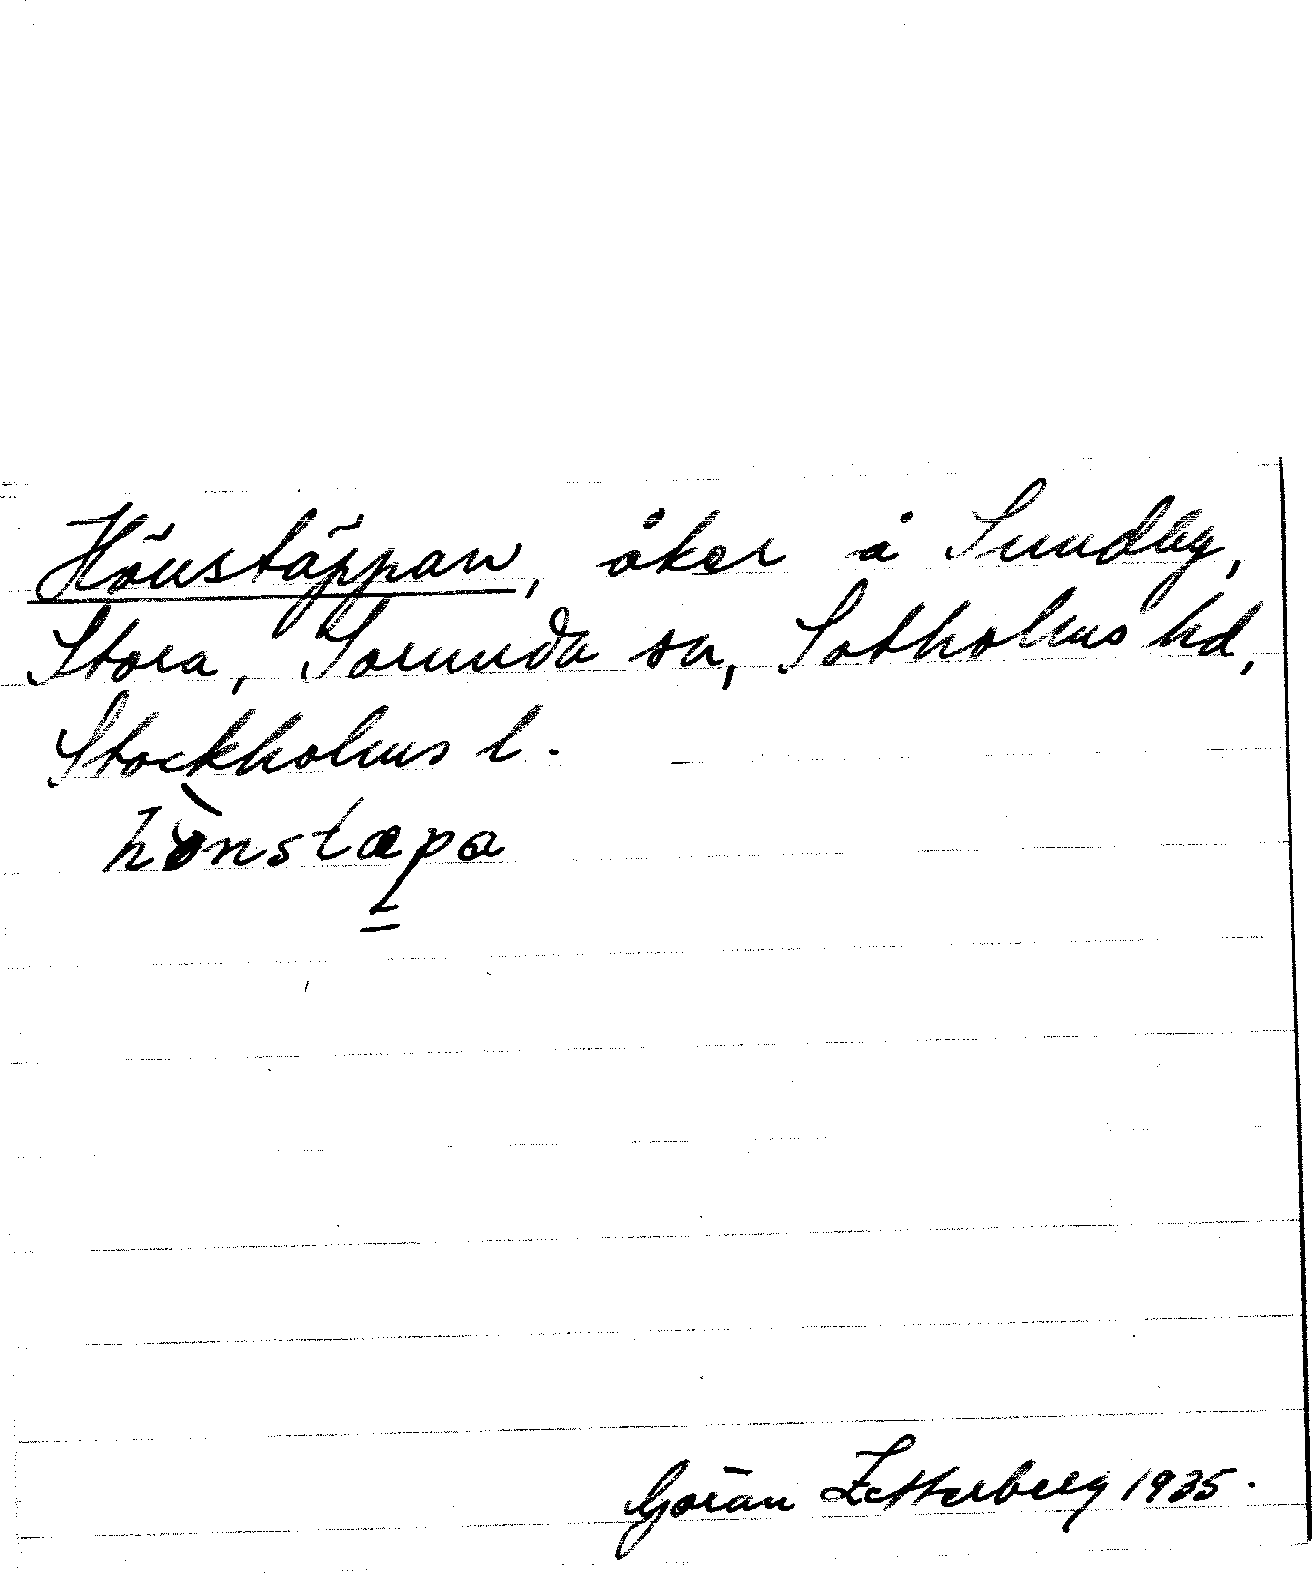 Hönstäppan, åker å Sundby,
Stora, Sorunda sn, Sotholms hd,
Stockholms l.
hönstæpa
Göran Zetterberg 1935.